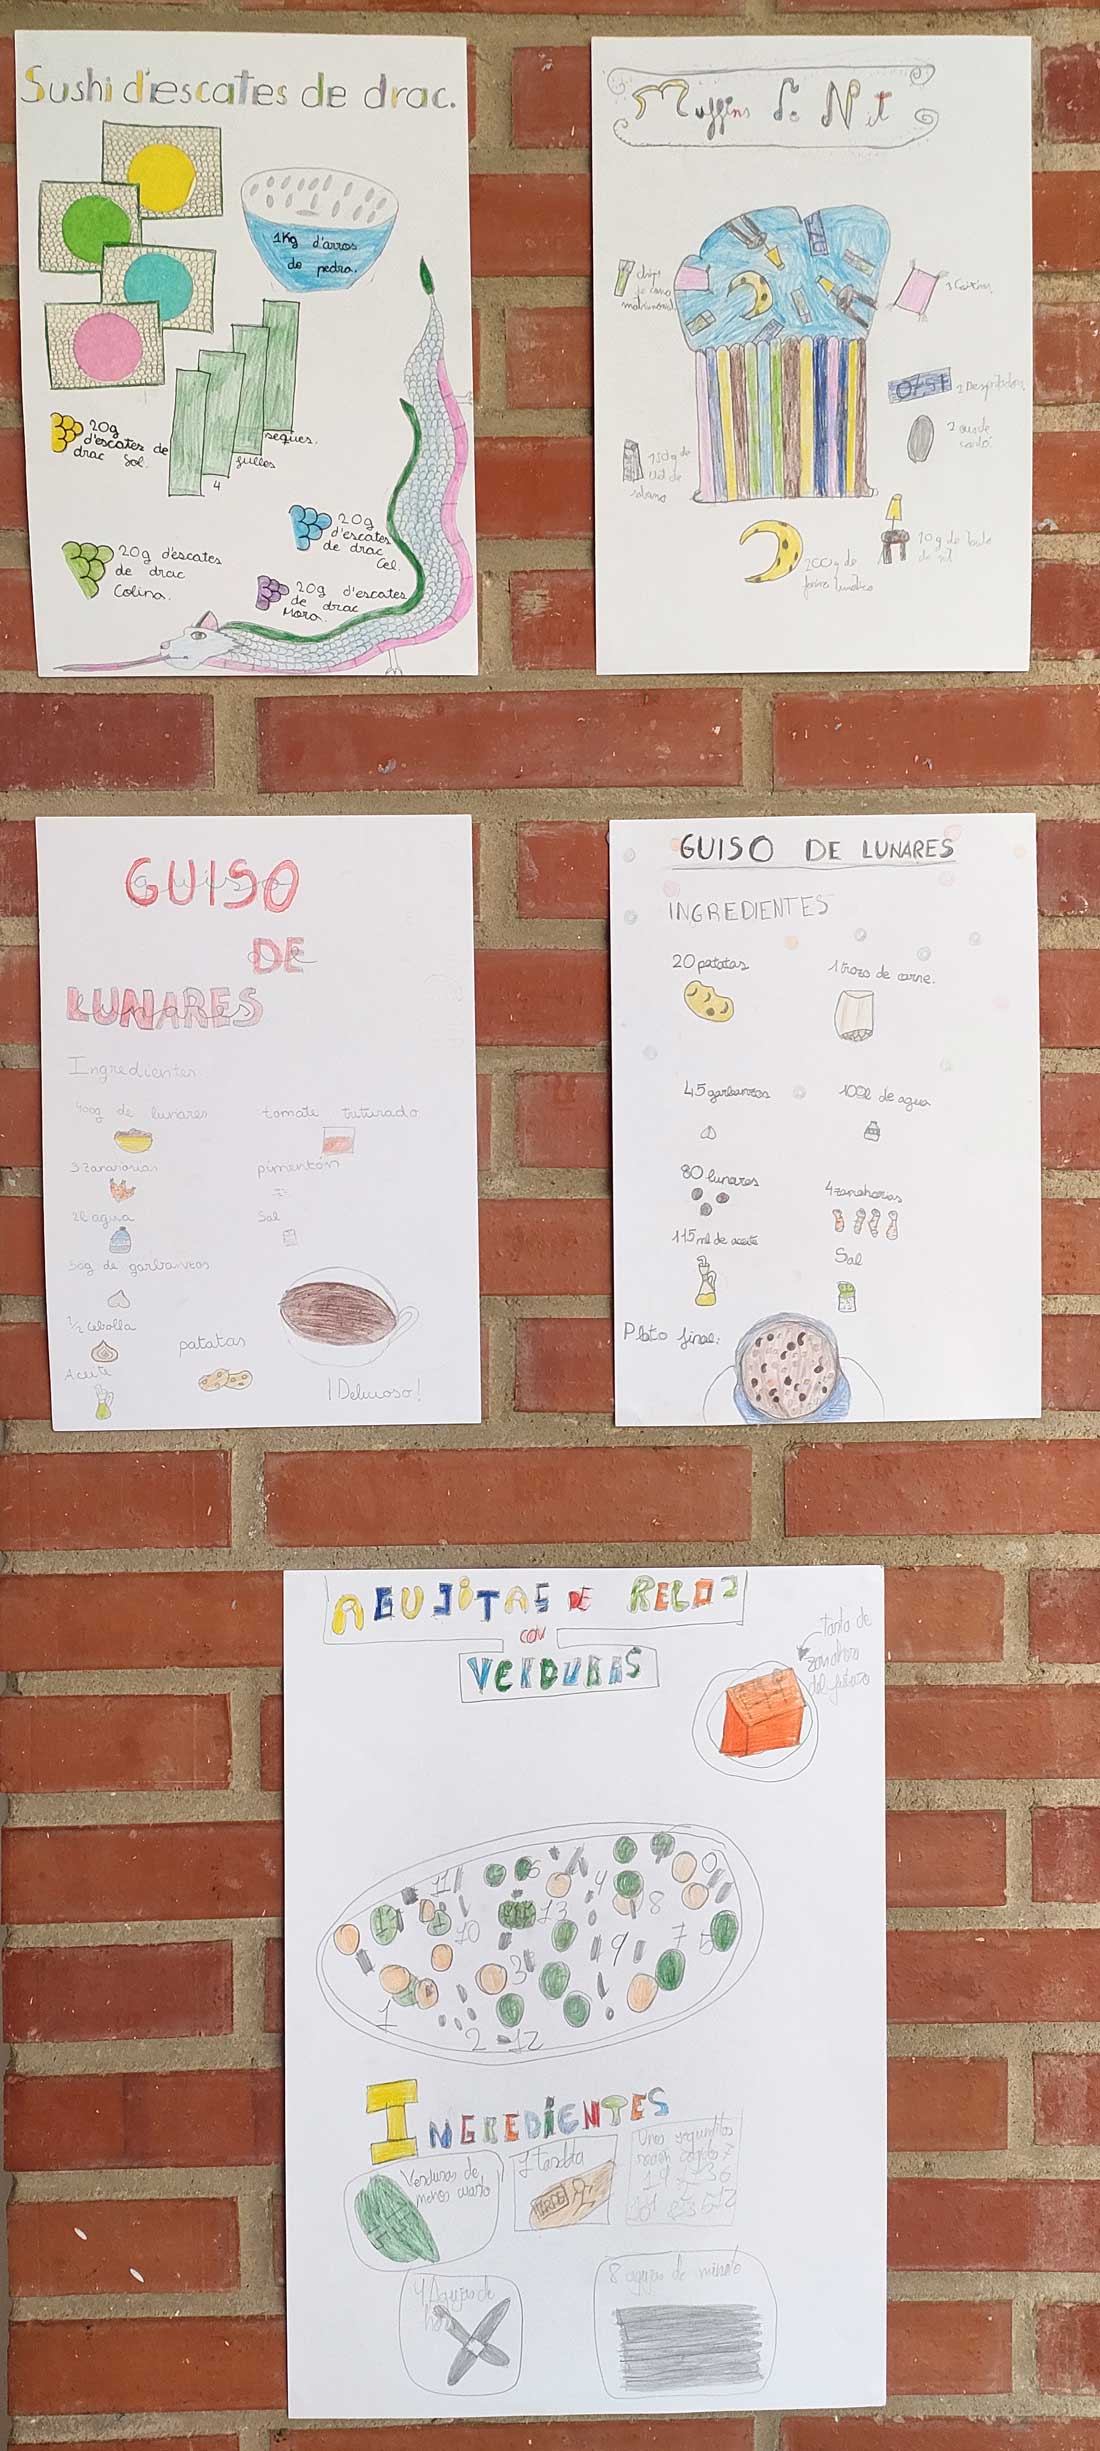 Sushi d'escates de drac.
1Kg d'arros
de pedra.
20g
d'escates de
drac Sol.
4
fulles
seques.
20g
d'escates
de drac
Cel.
20g d'escates
de drac
Colina.
20g d'escates
de drac
Mora.
Muffins de Nit
chips
de cama
matrimonial
3 Coixins
2 Despertadors
2 ous de
carbó.
150g de
de
200g de
farina lunática
10g de
de nit
GUISO
DE
LUNARES
Ingredientes
400g de lunares
tomate triturado
3 zanahorias
pimentón
2l agua
Sal
50g de garbanzos
1/2 cebolla
patatas
Aceite
¡Delicioso!
GUISO DE LUNARES
INGREDIENTES
20 patatas
1 trozo de carne.
45 garbanzos
100l de agua
80 lunares
4 zanahorias
115 ml de aceite
Sal
Plato final:
AGUJITAS DE RELOJ
CON
VERDURAS
tarta de
zanahoria
del futuro
11
6
4
0
10
13
8
3
9
7
5
1
2
12
INGREDIENTES
Verduras de
menos cuarto
1 tardita
Unos segunditos
recién cogidos
4 Agujas de
hora
8 agujas de minuto